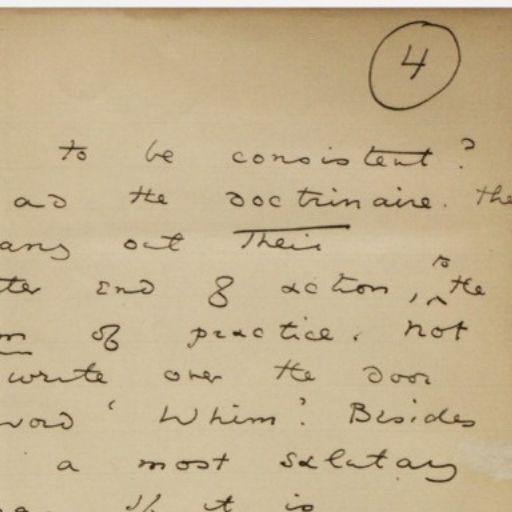 4
to be consistent?
and the doctrinaire. the
out their
ter end of action, to the
m of practice. Not
write over the door
word 'Whim'. Besides
a most salutary
If it is